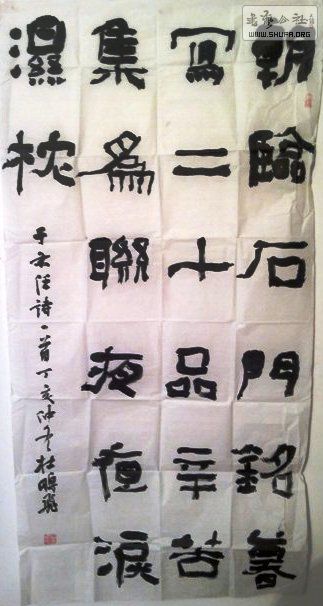 書藝公社
WWW.SHUFA.ORG
朝臨石門銘暮
寫二十品辛苦
集爲聯夜夜淚
濕枕
于右任詩一首丁亥仲冬杜